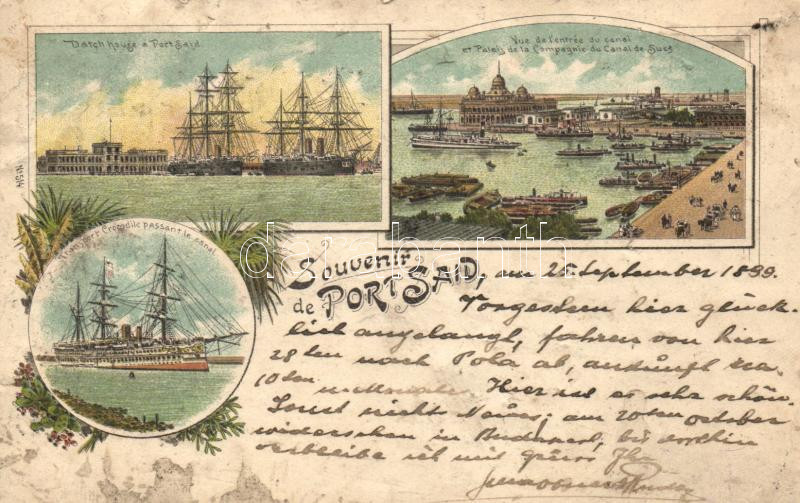 Dutch house a Port Said
Vue de l'entrée du canal
et Palais de la Compagnie du Canal de Suez
Crocodile passant le canal
darabanth
Souvenir
de PORT SAÏD,
am 26 September 1899.
Vorgestern hier glück-
lich angelangt, fahren von hier
28ten nach Pola ab, ankunft
10ten Hier ist es sehr schön.
Sonst nicht Neues; am 20ten october
widersehen in Budapest, bis dorthin
verbleibe ich mit